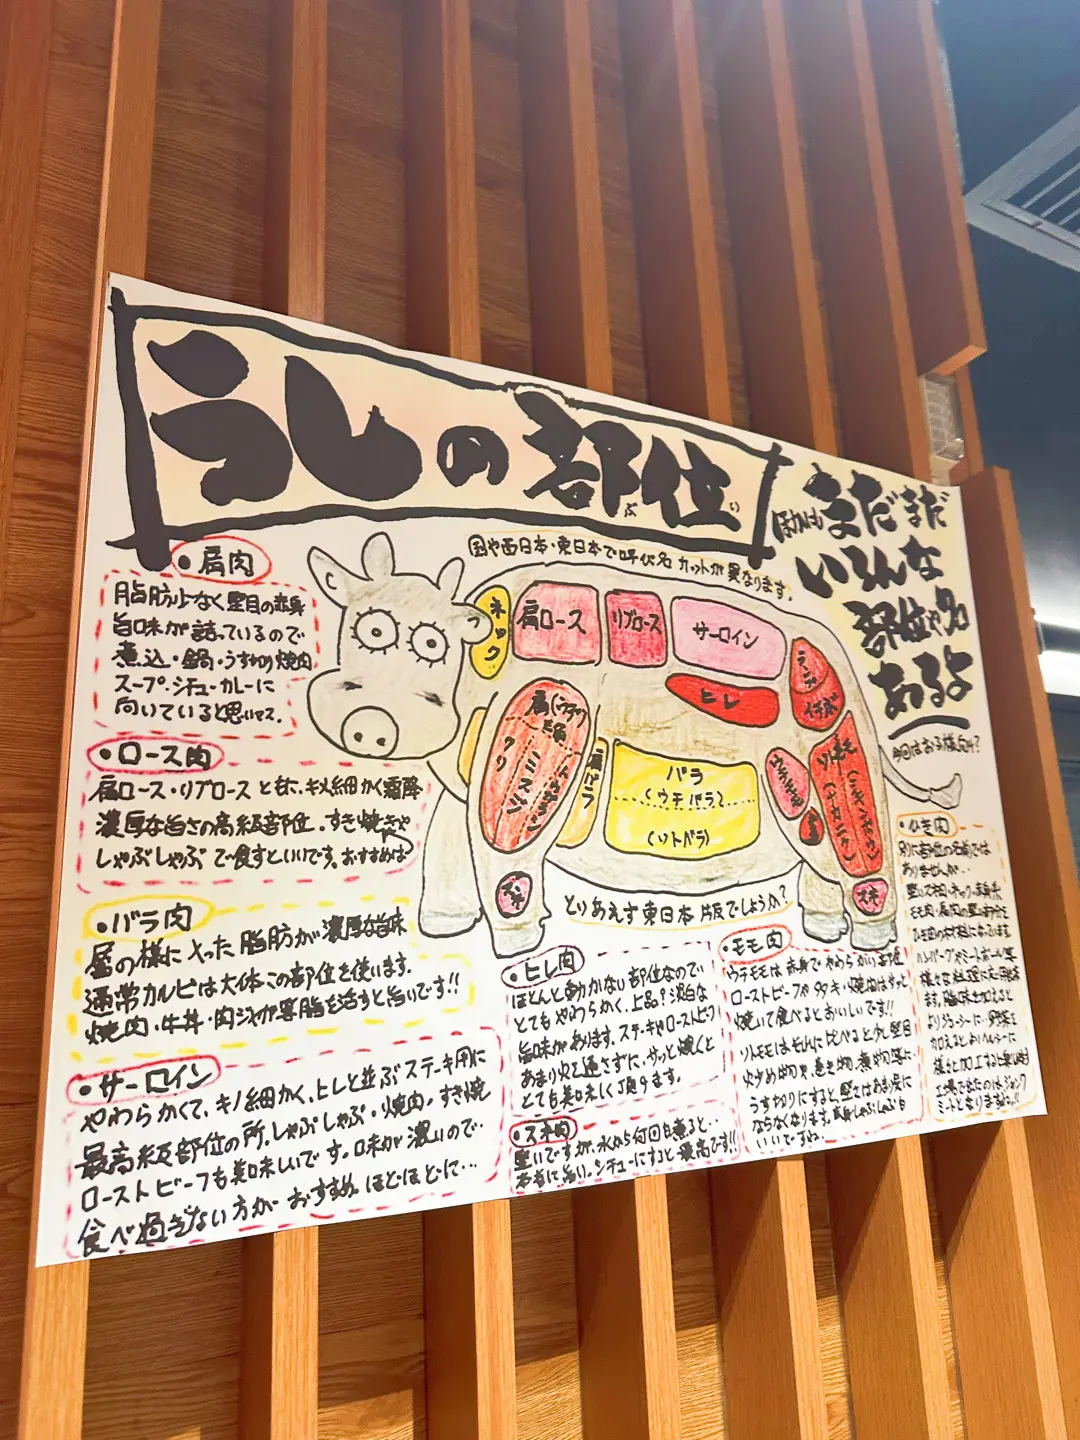 うしの部位
ぶ い
ほかにも まだまだ
いろんな
部位や名
あるよ
今回はおる様向け?
国や西日本・東日本で呼び名 カットが異なります。
ネック
肩ロース
リブロース
サーロイン
ヒレ
ランプ
イチボ
肩(ウデ)
三角
クリ
ミスジ
トウガラシ
肩バラ
バラ
(ウチバラ)
(ソトバラ)
ウチモモ
ソトモモ
スネ
スネ
とりあえす東日本版でしょうか?
・肩肉
脂肪少なく堅目の赤身
旨味が詰っているので
煮込・鍋・うす切り焼肉
スープ・シチュー・カレーに
向いていると思います。
・ロース肉
肩ロース・リブロースと共に、キメ細かく霜降
濃厚な旨さの高級部位。すき焼きや
しゃぶしゃぶで食すといいです。おすすめは
・バラ肉
層の様に入った脂肪が濃厚な旨味
通常カルビは大体この部位を使います。
焼肉・牛丼・肉ジャガ等脂を活すと旨いです!!
・サーロイン
やわらかくて、キメ細かく、ヒレと並ぶステーキ用に
最高級部位の所。しゃぶしゃぶ・焼肉・すき焼
ローストビーフも美味しいです。味が濃いので…
食べ過ぎない方がおすすめ。ほどほどに…
・ヒレ肉
ほとんど動かない部位なので
とてもやわらかく、上品?淡白な
旨味があります。ステーキやローストビーフ
あまり火を通さずに、サッと焼くと
とても美味しく頂けます。
・スネ肉
堅いですが、水から何回も煮ると…
本当に旨い。シチューにすると最高です!!
・モモ肉
ウチモモは赤身でやわらかい部位
ローストビーフやタタキ・焼肉はサッと
焼いて食べるとおいしいです!!
ソトモモはモモに比べると少し堅目
炒め物や、巻き物、煮物等に
うす切りにすると、堅さはあまり気に
ならなくなります。赤身しゃぶしゃぶも
いいですね。
・ひき肉
別に部位の名前では
ありませんが…
堅いスネ肉・ネック・赤身系
モモ肉・肩肉の堅い部分を
ハンバーグやミートボール等
様々な料理に利用出来
ます。脂味を加えると
よりジューシーに…野菜を
加えるとよりヘルシーに